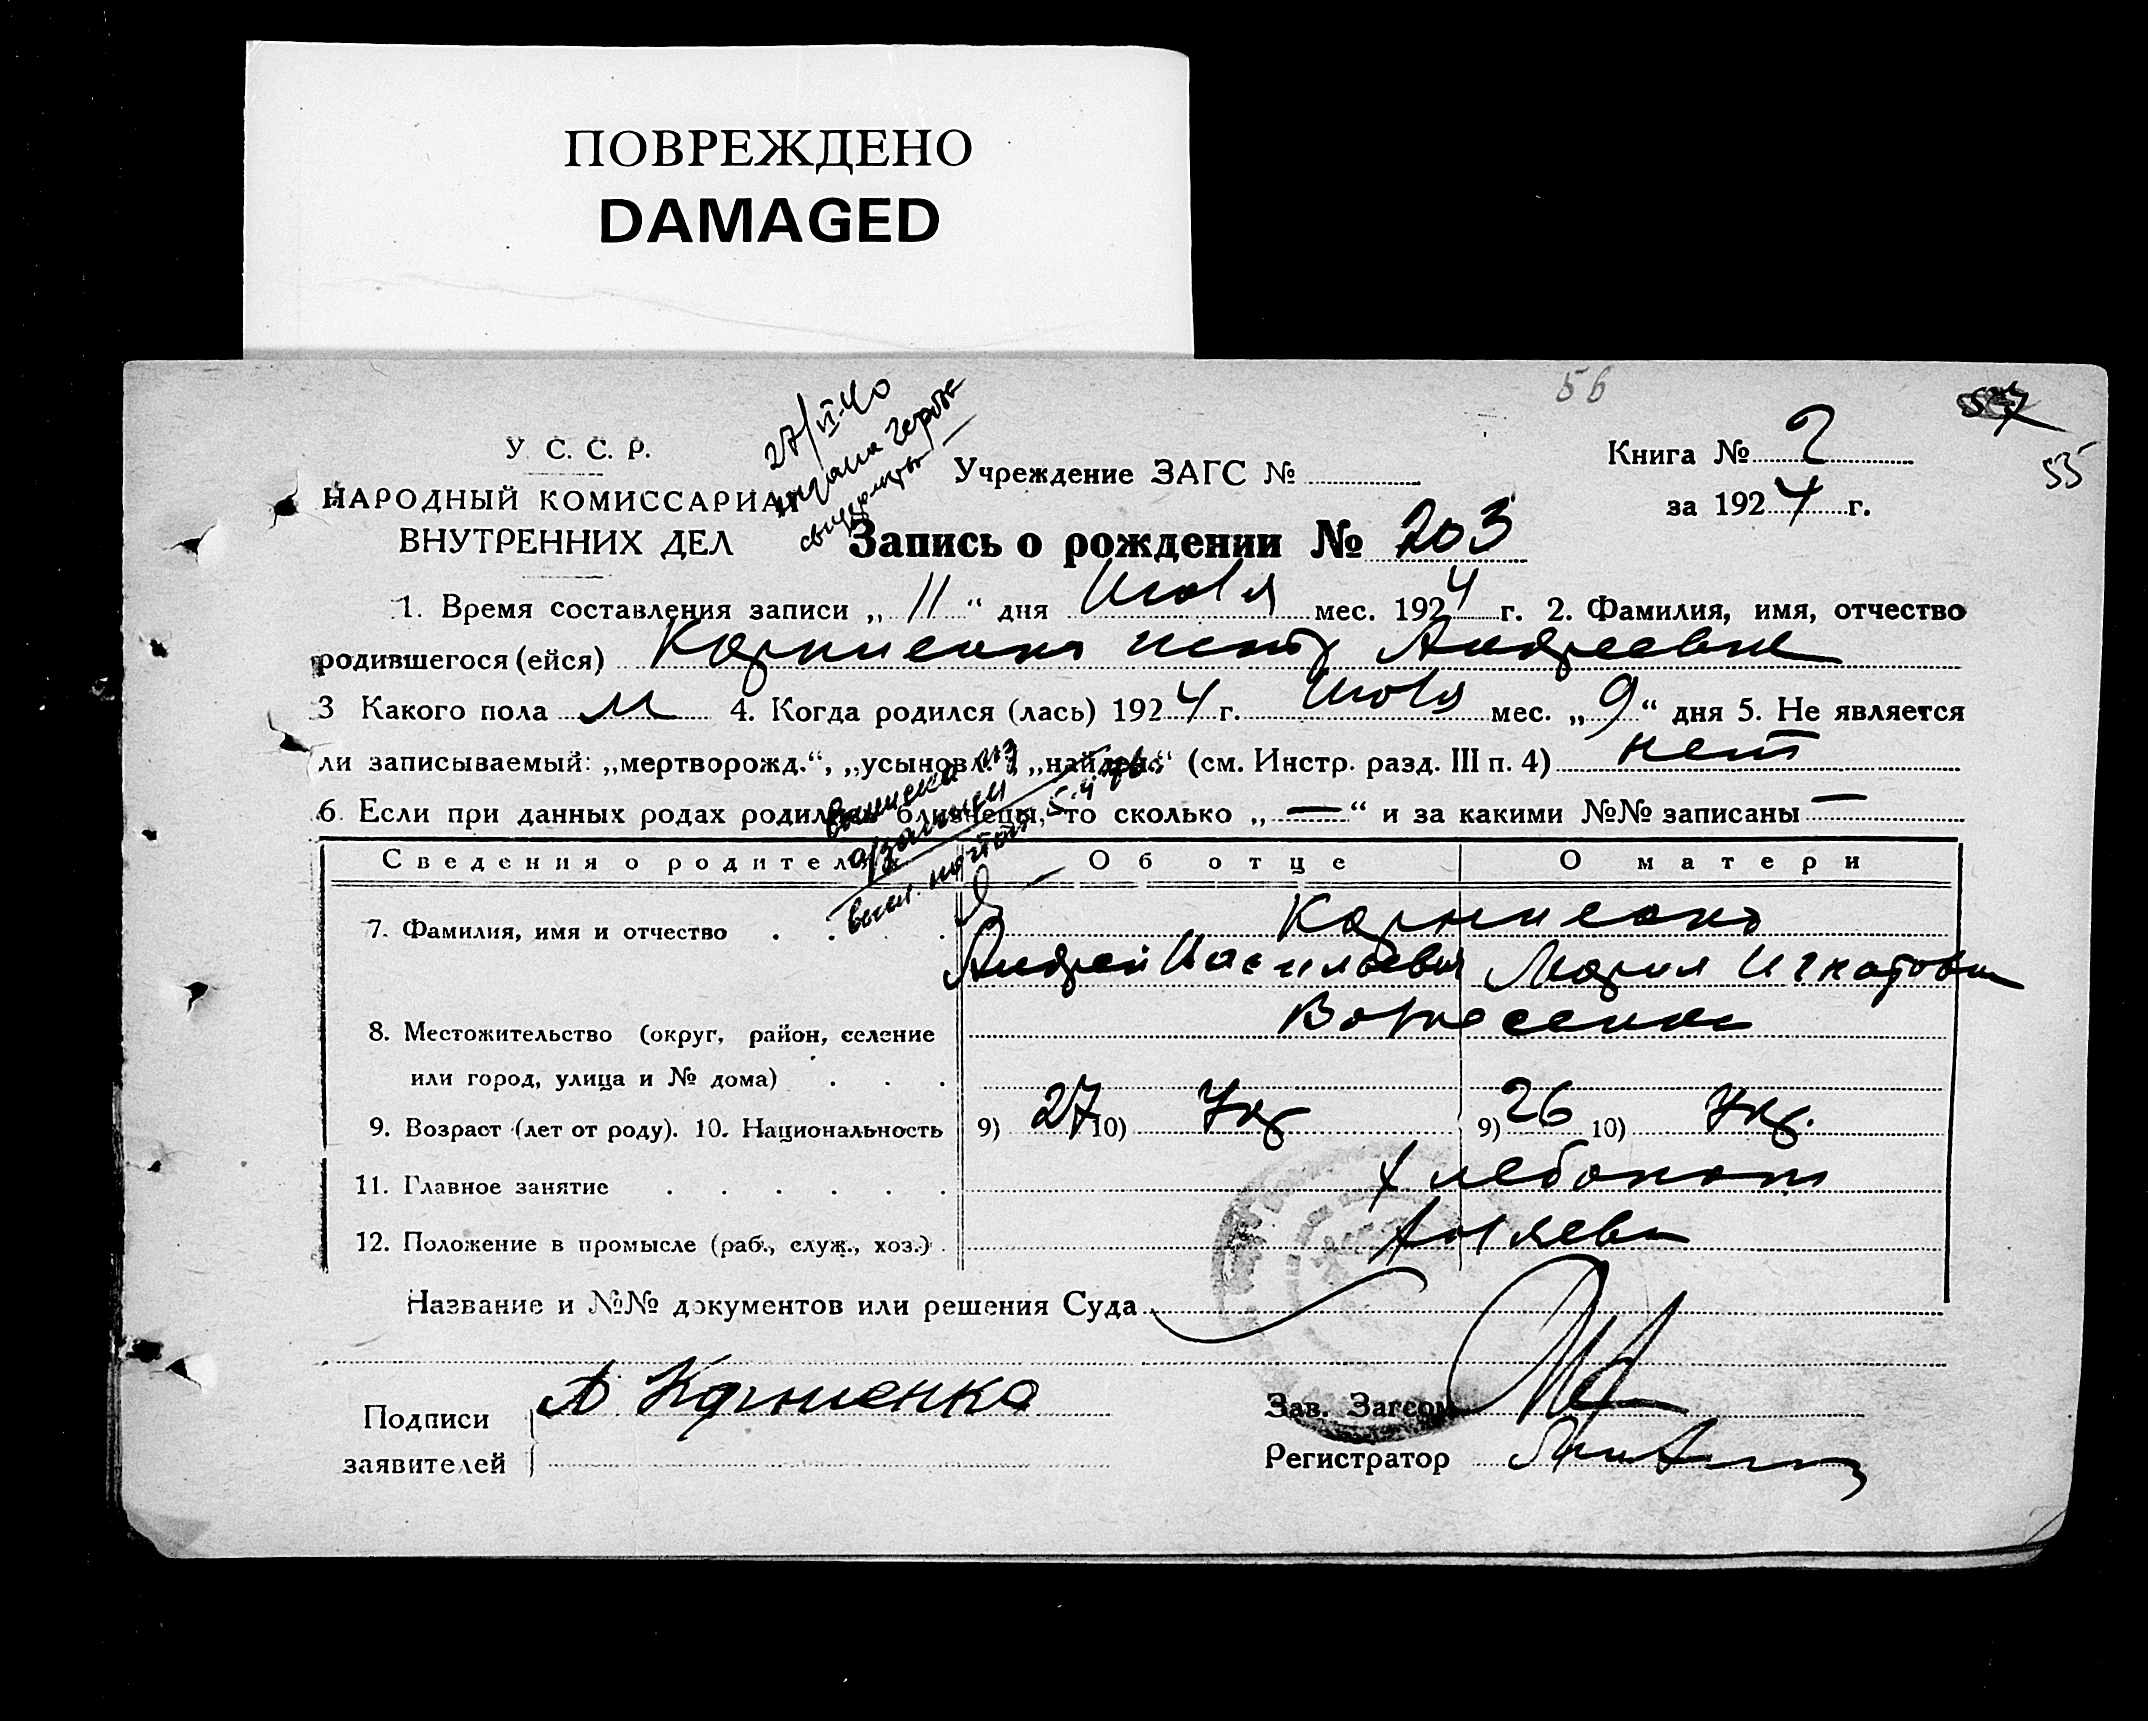 ПОВРЕЖДЕНО
DAMAGED
56
55
У. С. С. Р.
НАРОДНЫЙ КОМИССАРИАТ
ВНУТРЕННИХ ДЕЛ
27/II-40
Учреждение ЗАГС №
Книга № 2
за 1924 г.
Запись о рождении № 203
1. Время составления записи „ 11 “ дня Июля мес. 1924 г. 2. Фамилия, имя, отчество
родившегося (ейся) Корниенко Петр Андреевич
3 Какого пола м 4. Когда родился (лась) 1924 г. Июля мес. „ 9 “ дня 5. Не является
ли записываемый: „мертворожд.“, „усыновл.“, „найден.“ (см. Инстр. разд. III п. 4) нет
6. Если при данных родах родились близнецы, то сколько „ — “ и за какими №№ записаны —
выписка из
Сведения о родителях Об отце О матери
7. Фамилия, имя и отчество Корниенко
Андрей Васильевич Мария Игнатовна
8. Местожительство (округ, район, селение Вознесенск
или город, улица и № дома)
9. Возраст (лет от роду). 10. Национальность 9) 27 10) Укр 9) 26 10) Укр.
11. Главное занятие Хлебопаш
12. Положение в промысле (раб., служ., хоз.) Хозяева
Название и №№ документов или решения Суда
Подписи А Корниенко Зав. Загсом
заявителей Регистратор